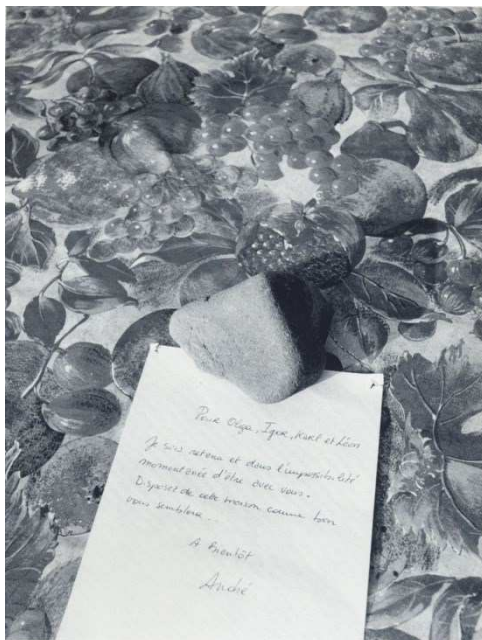 Pour Olga, Igor, Karl et Léon
Je suis retenu et dans l'impossibilité
momentanée d'être avec vous.
Disposez de cette maison comme bon
vous semblera...
A Bientôt
André